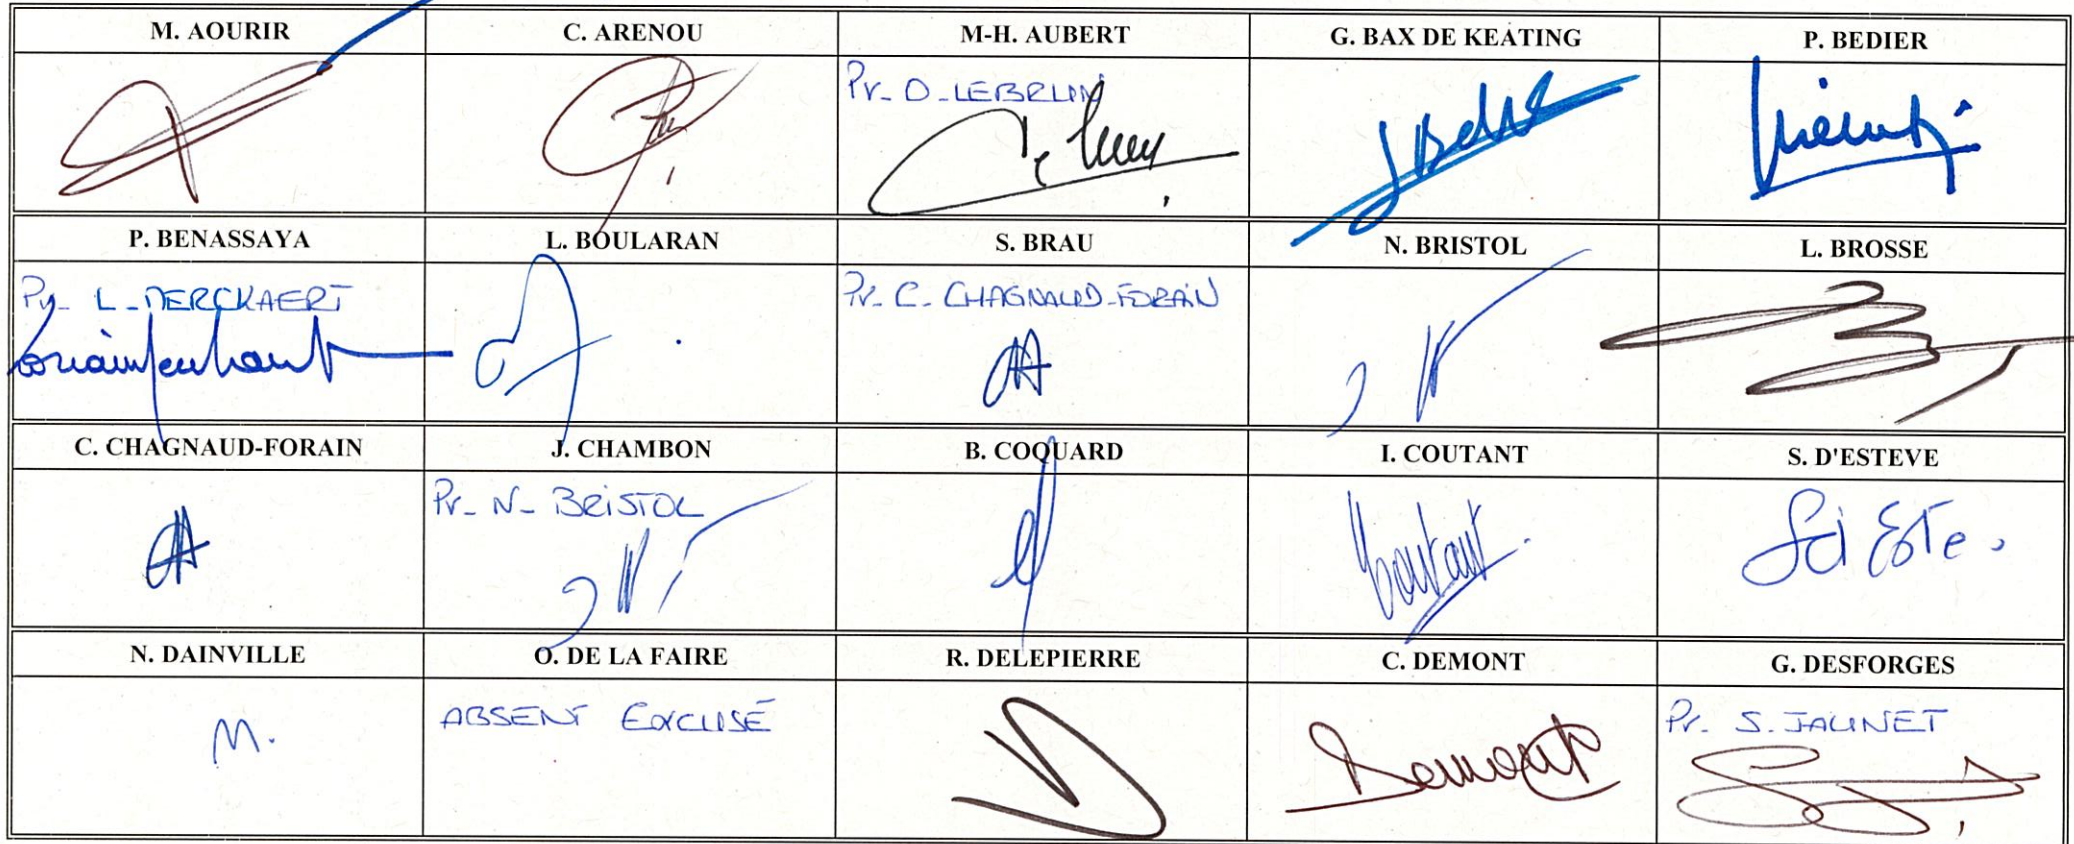 M. AOURIR
C. ARENOU
M-H. AUBERT
G. BAX DE KEATING
P. BEDIER
Pr_ O_LEBRUN
P. BENASSAYA
L. BOULARAN
S. BRAU
N. BRISTOL
L. BROSSE
Pr_ L_MERCKAERT
Pr_ C_ CHAGNAUD-FORAIN
C. CHAGNAUD-FORAIN
J. CHAMBON
B. COQUARD
I. COUTANT
S. D'ESTEVE
Pr_ N_ BRISTOL
Coutant
N. DAINVILLE
O. DE LA FAIRE
R. DELEPIERRE
C. DEMONT
G. DESFORGES
M.
ABSENT EXCUSÉ
Demont
Pr. S. JAUNET